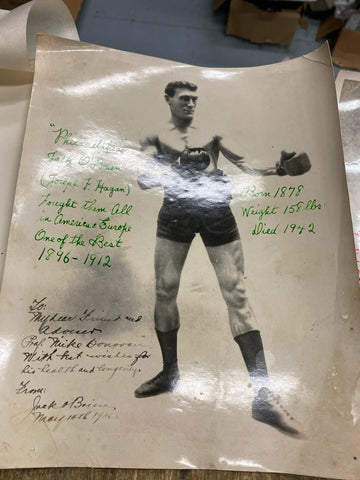 "Philadelphia
Jack O'Brien
(Joseph F. Hagan)
Fought Them All
in America & Europe
One of the Best
1896-1912
Born 1878
Weight 158 lbs
Died 1942
To:
My dear Friend and
Advisor
Prof. Mike Donovan
With best wishes for
his health and longevity.
From:
Jack O'Brien.
May 10th